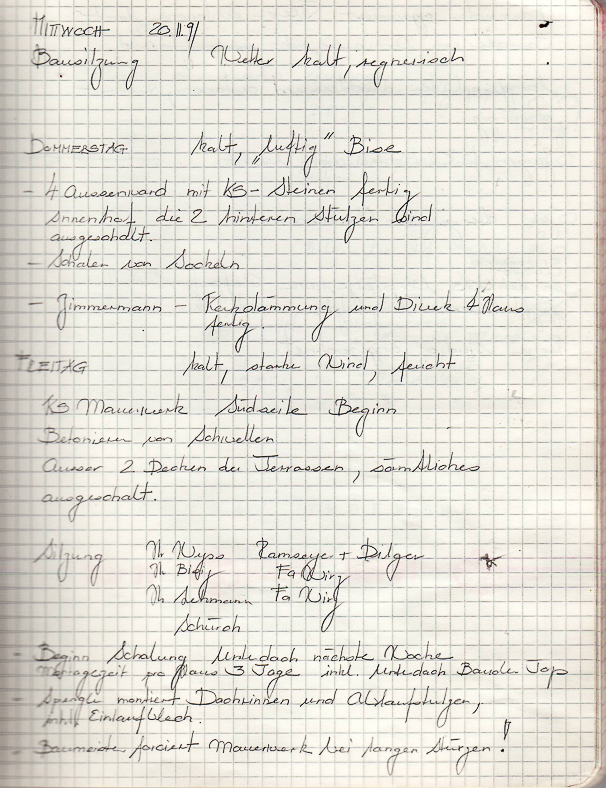 MITTWOCH 20.11.91
Bausitzung Wetter kalt, regnerisch
DONNERSTAG kalt, "luftig" Bise
- 4 Aussenwand mit KS-Steinen fertig
Innenhof die 2 hinteren Stützen sind
ausgeschalt.
- Schalen von Sockeln
- Zimmermann - Korkdämmung und 4 Haus
fertig.
FREITAG kalt, starke Wind, feucht
KS Mauerwerk Südseite Beginn
Betonieren von Schwellen
Ausser 2 Decken der Terrassen, sämtliches
ausgeschalt.
Sitzung Hr Wyss Ramseyer + Dilger
Hr Fa Wirz
Hr Lehmann Fa Wirz
Schürch
- Beginn Schalung Unterdach nächste Woche
Montagezeit pro Haus 3 Tage inkl. Unterdach
- Spengler montiert Dachrinnen und Ablaufstutzen,
inkl. Einlaufblech.
- Baumeister forciert Mauerwerk bei langen Stürzen!